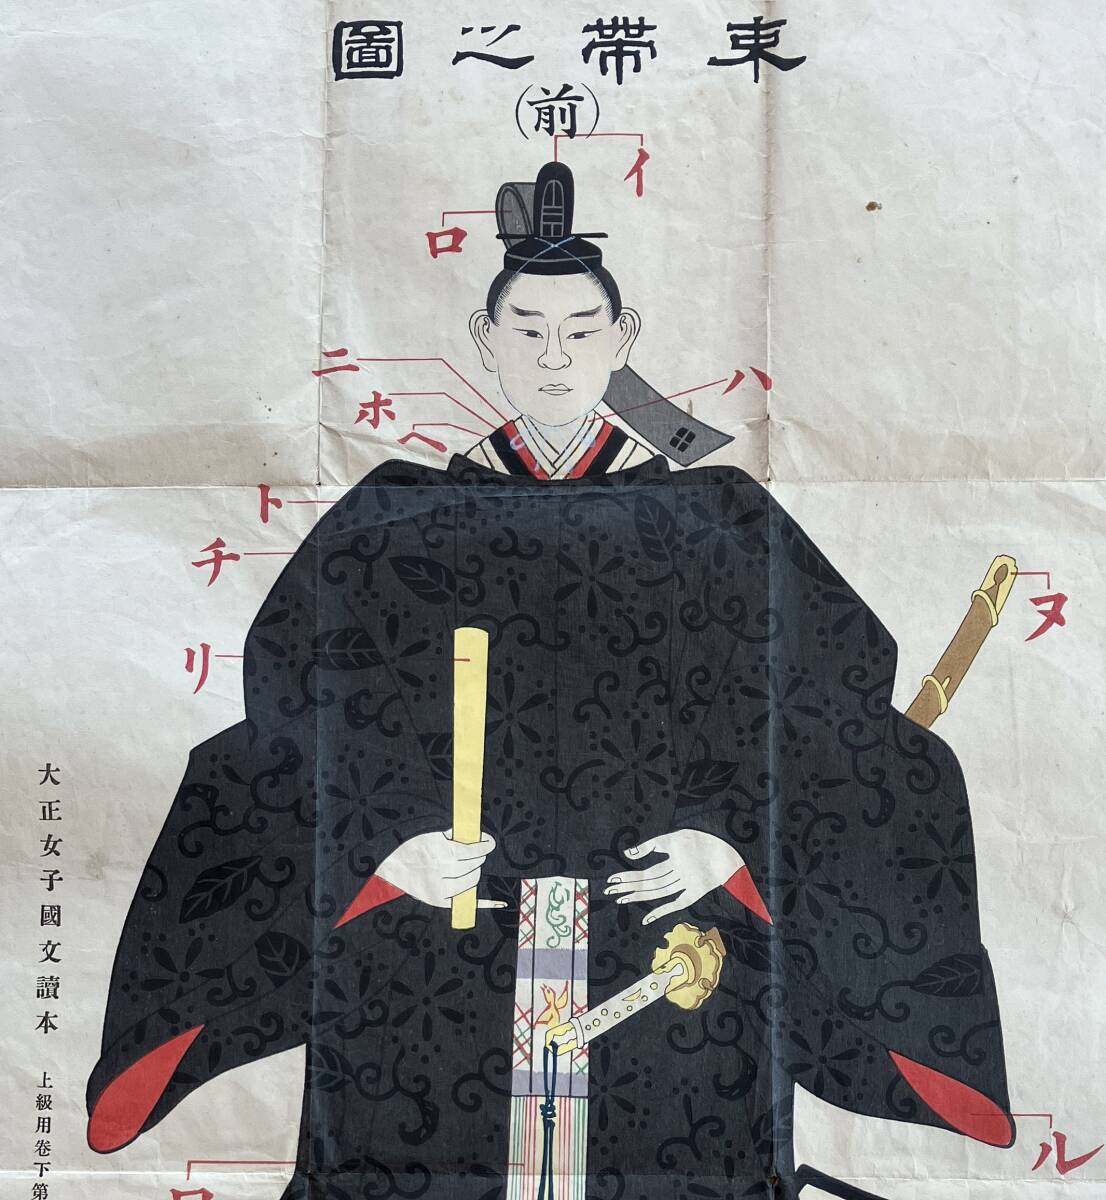 束帶之圖
(前)
イ
ロ
ハ
ニ
ホ
ヘ
ト
チ
リ
ヌ
ル
大正女子國文讀本 上級用卷下第